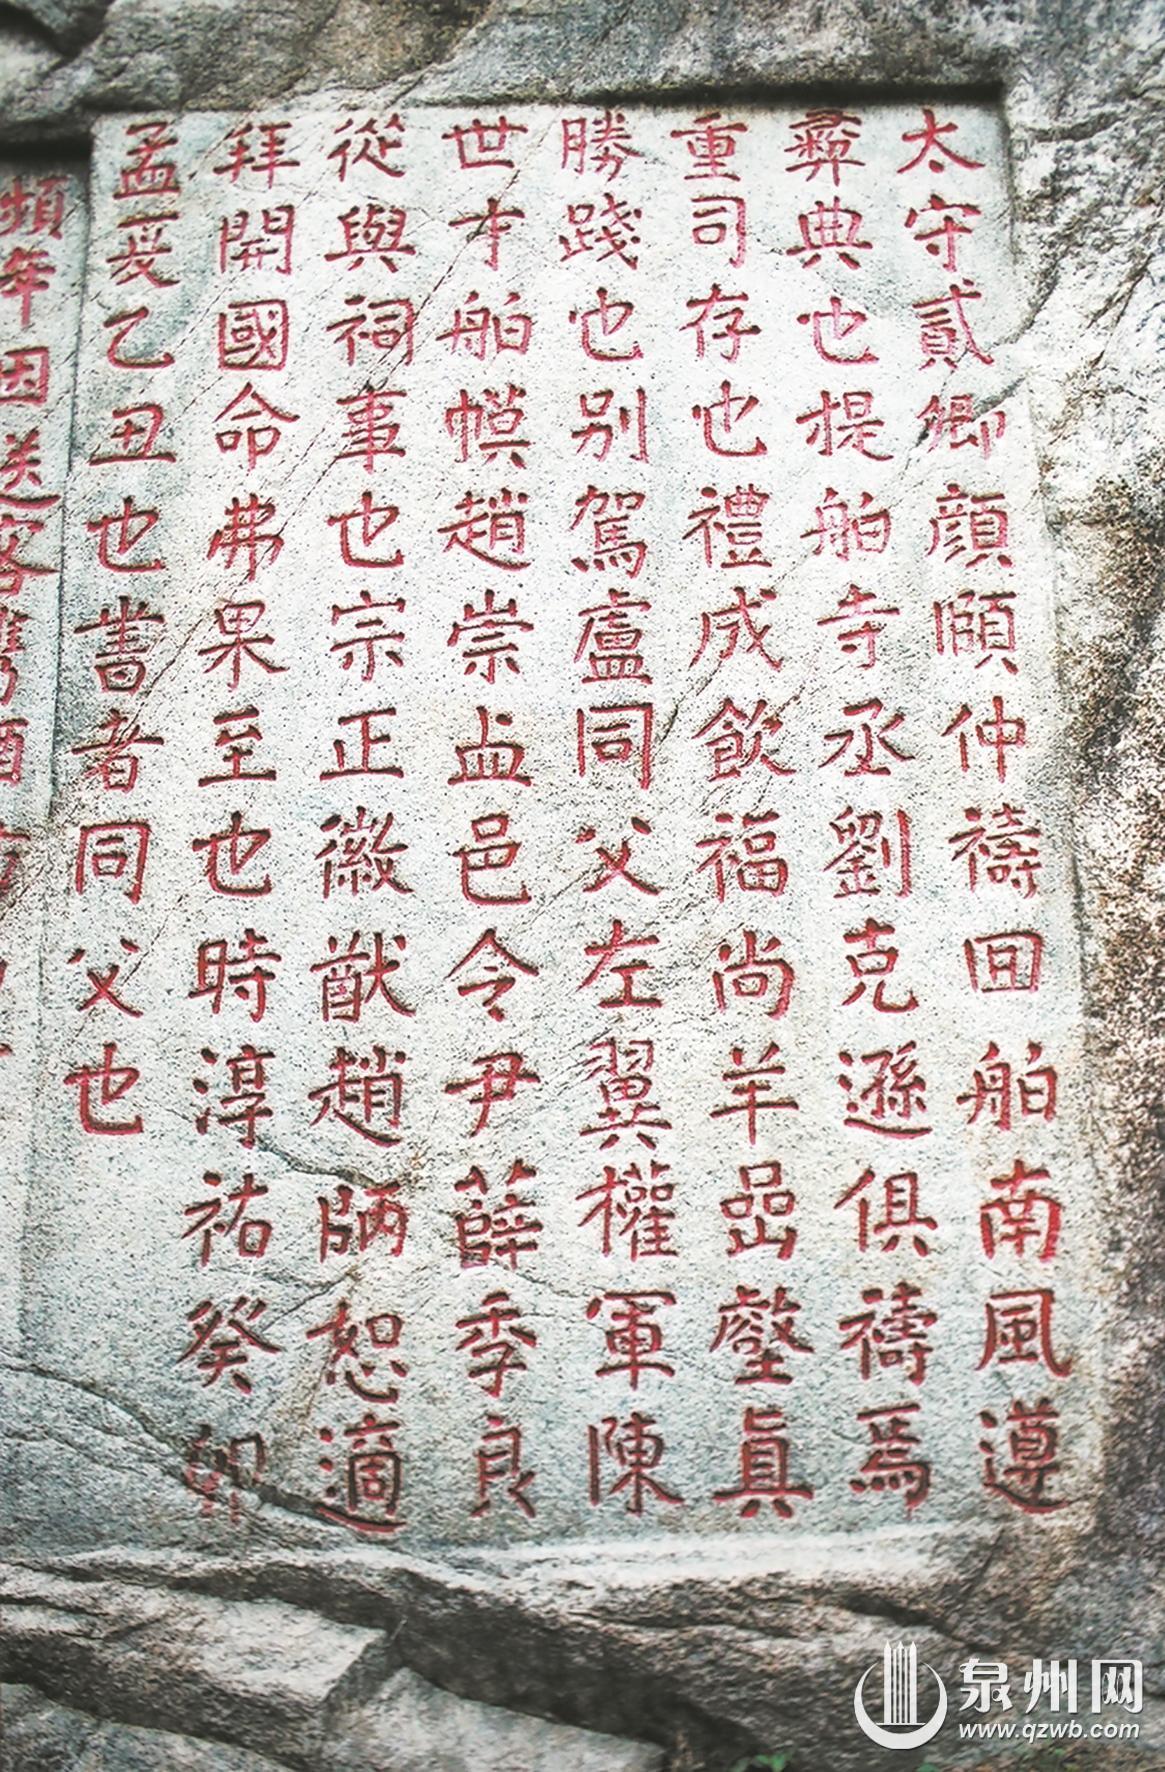 太守貳卿顏頤仲禱囬舶南風遵
彞典也提舶寺丞劉克遜俱禱焉
重司存也禮成飲福尚羊嵒壑真
勝踐也別駕盧同父左翼權軍陳
世才舶幙趙崇邑令尹薛季良
從與祠事也宗正徽猷趙師恕適
拜開國命弗果至也時淳祐癸卯
孟夏乙丑也書者同父也
頻年因送客攜酒
泉州网
www.qzwb.com